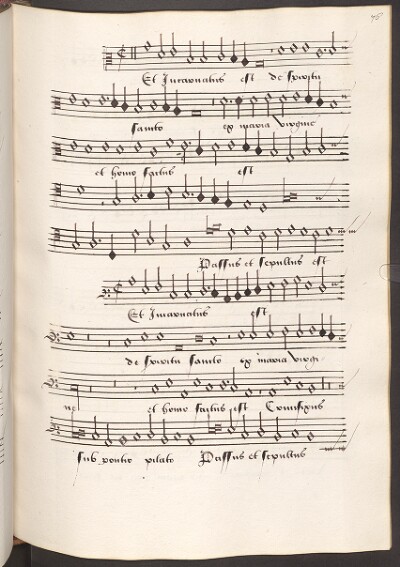 78
Et Incarnatus est de spiritu
sancto ex maria virgine
et homo factus est
Passus et sepultus est
Et Incarnatus est
de spiritu sancto ex maria virgi
ne et homo factus est Crucifixus
sub pontio pilato Passus et sepultus